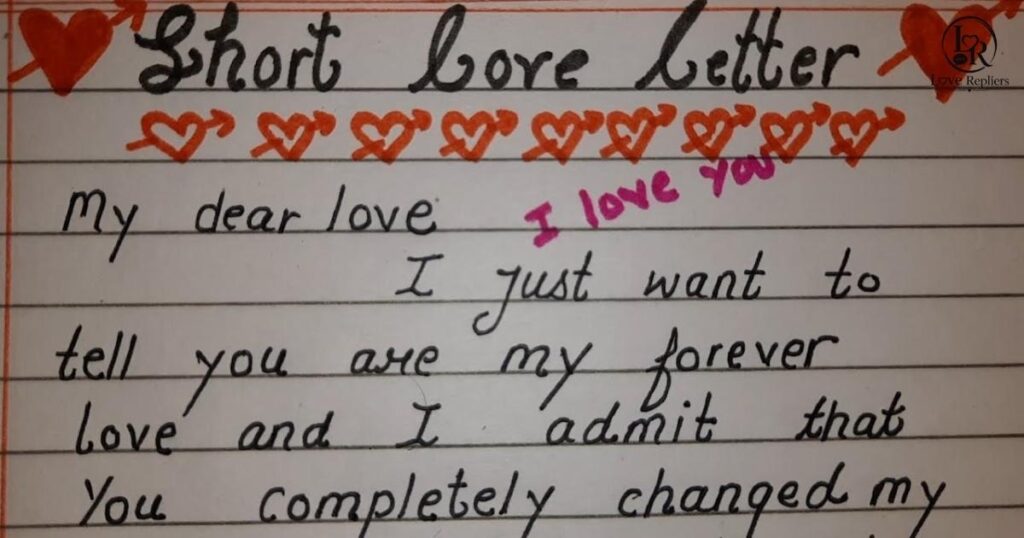 Short Love Letter
LR
Love Repliers
My dear love
I love you
I just want to
tell you are my forever
love and I admit that
You completely changed my